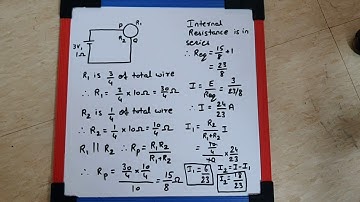 P R₁
R₂ Q
3V,
1Ω
R₁ is 3/4 of total wire
∴ R₁ = 3/4 × 10Ω = 30/4 Ω
R₂ is 1/4 of total wire
∴ R₂ = 1/4 × 10Ω = 10/4 Ω
R₁ || R₂ ∴ Rp = R₁R₂/R₁+R₂
∴ Rp = 30/4 × 10/4 / 10 = 15/8 Ω
Internal
Resistance is in
series
∴ Req = 15/8 + 1
= 23/8
I = E/Req = 3/23/8
∴ I = 24/23 A
I₁ = R₂/R₁+R₂ I
= 10/4/10 × 24/23
I₁ = 6/23
I₂ = I - I₁
I₂ = 18/23